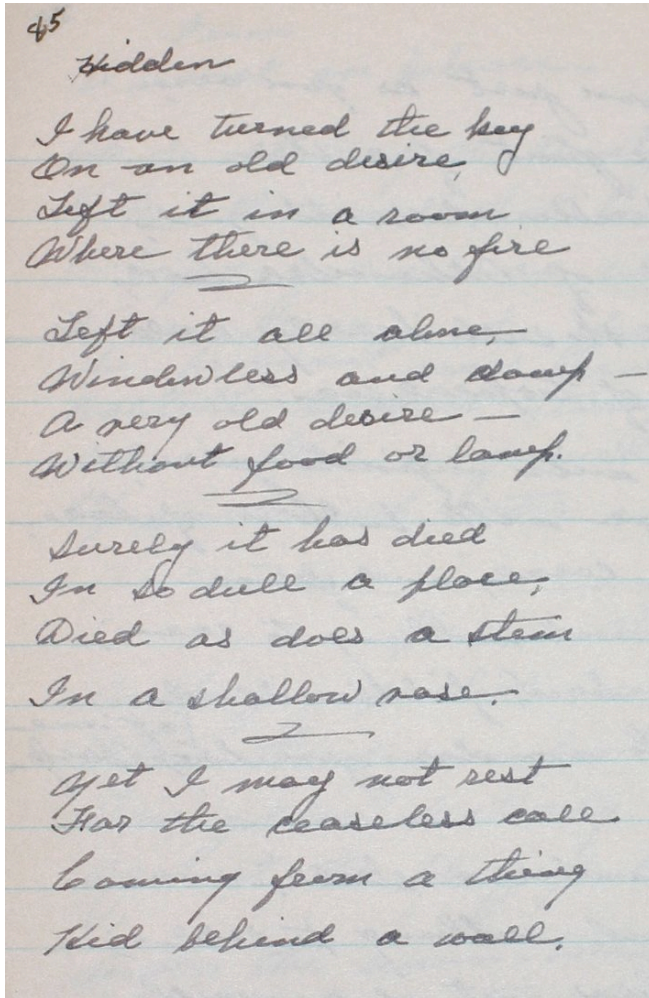 85
Hidden
I have turned the key
On an old desire,
Left it in a room
Where there is no fire
Left it all alone,
Windowless and damp —
A very old desire —
Without food or lamp.
Surely it has died
In so dull a place,
Died as does a stem
In a shallow vase.
Yet I may not rest
For the ceaseless call
Coming from a thing
Hid behind a wall.